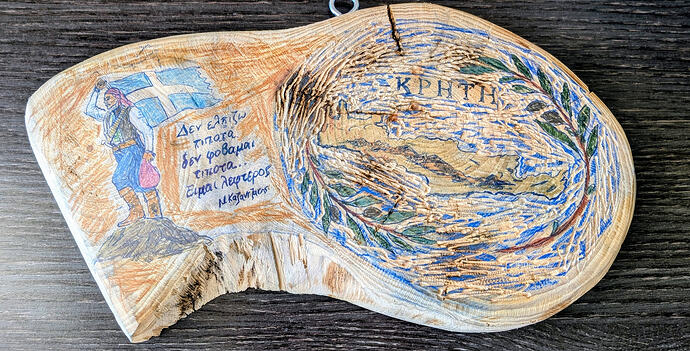 Δεν ελπίζω
τίποτα
δεν φοβαμαι
τίποτα...
Είμαι λεφτερος
Ν. Καζαντζακης
ΚΡΗΤΗ